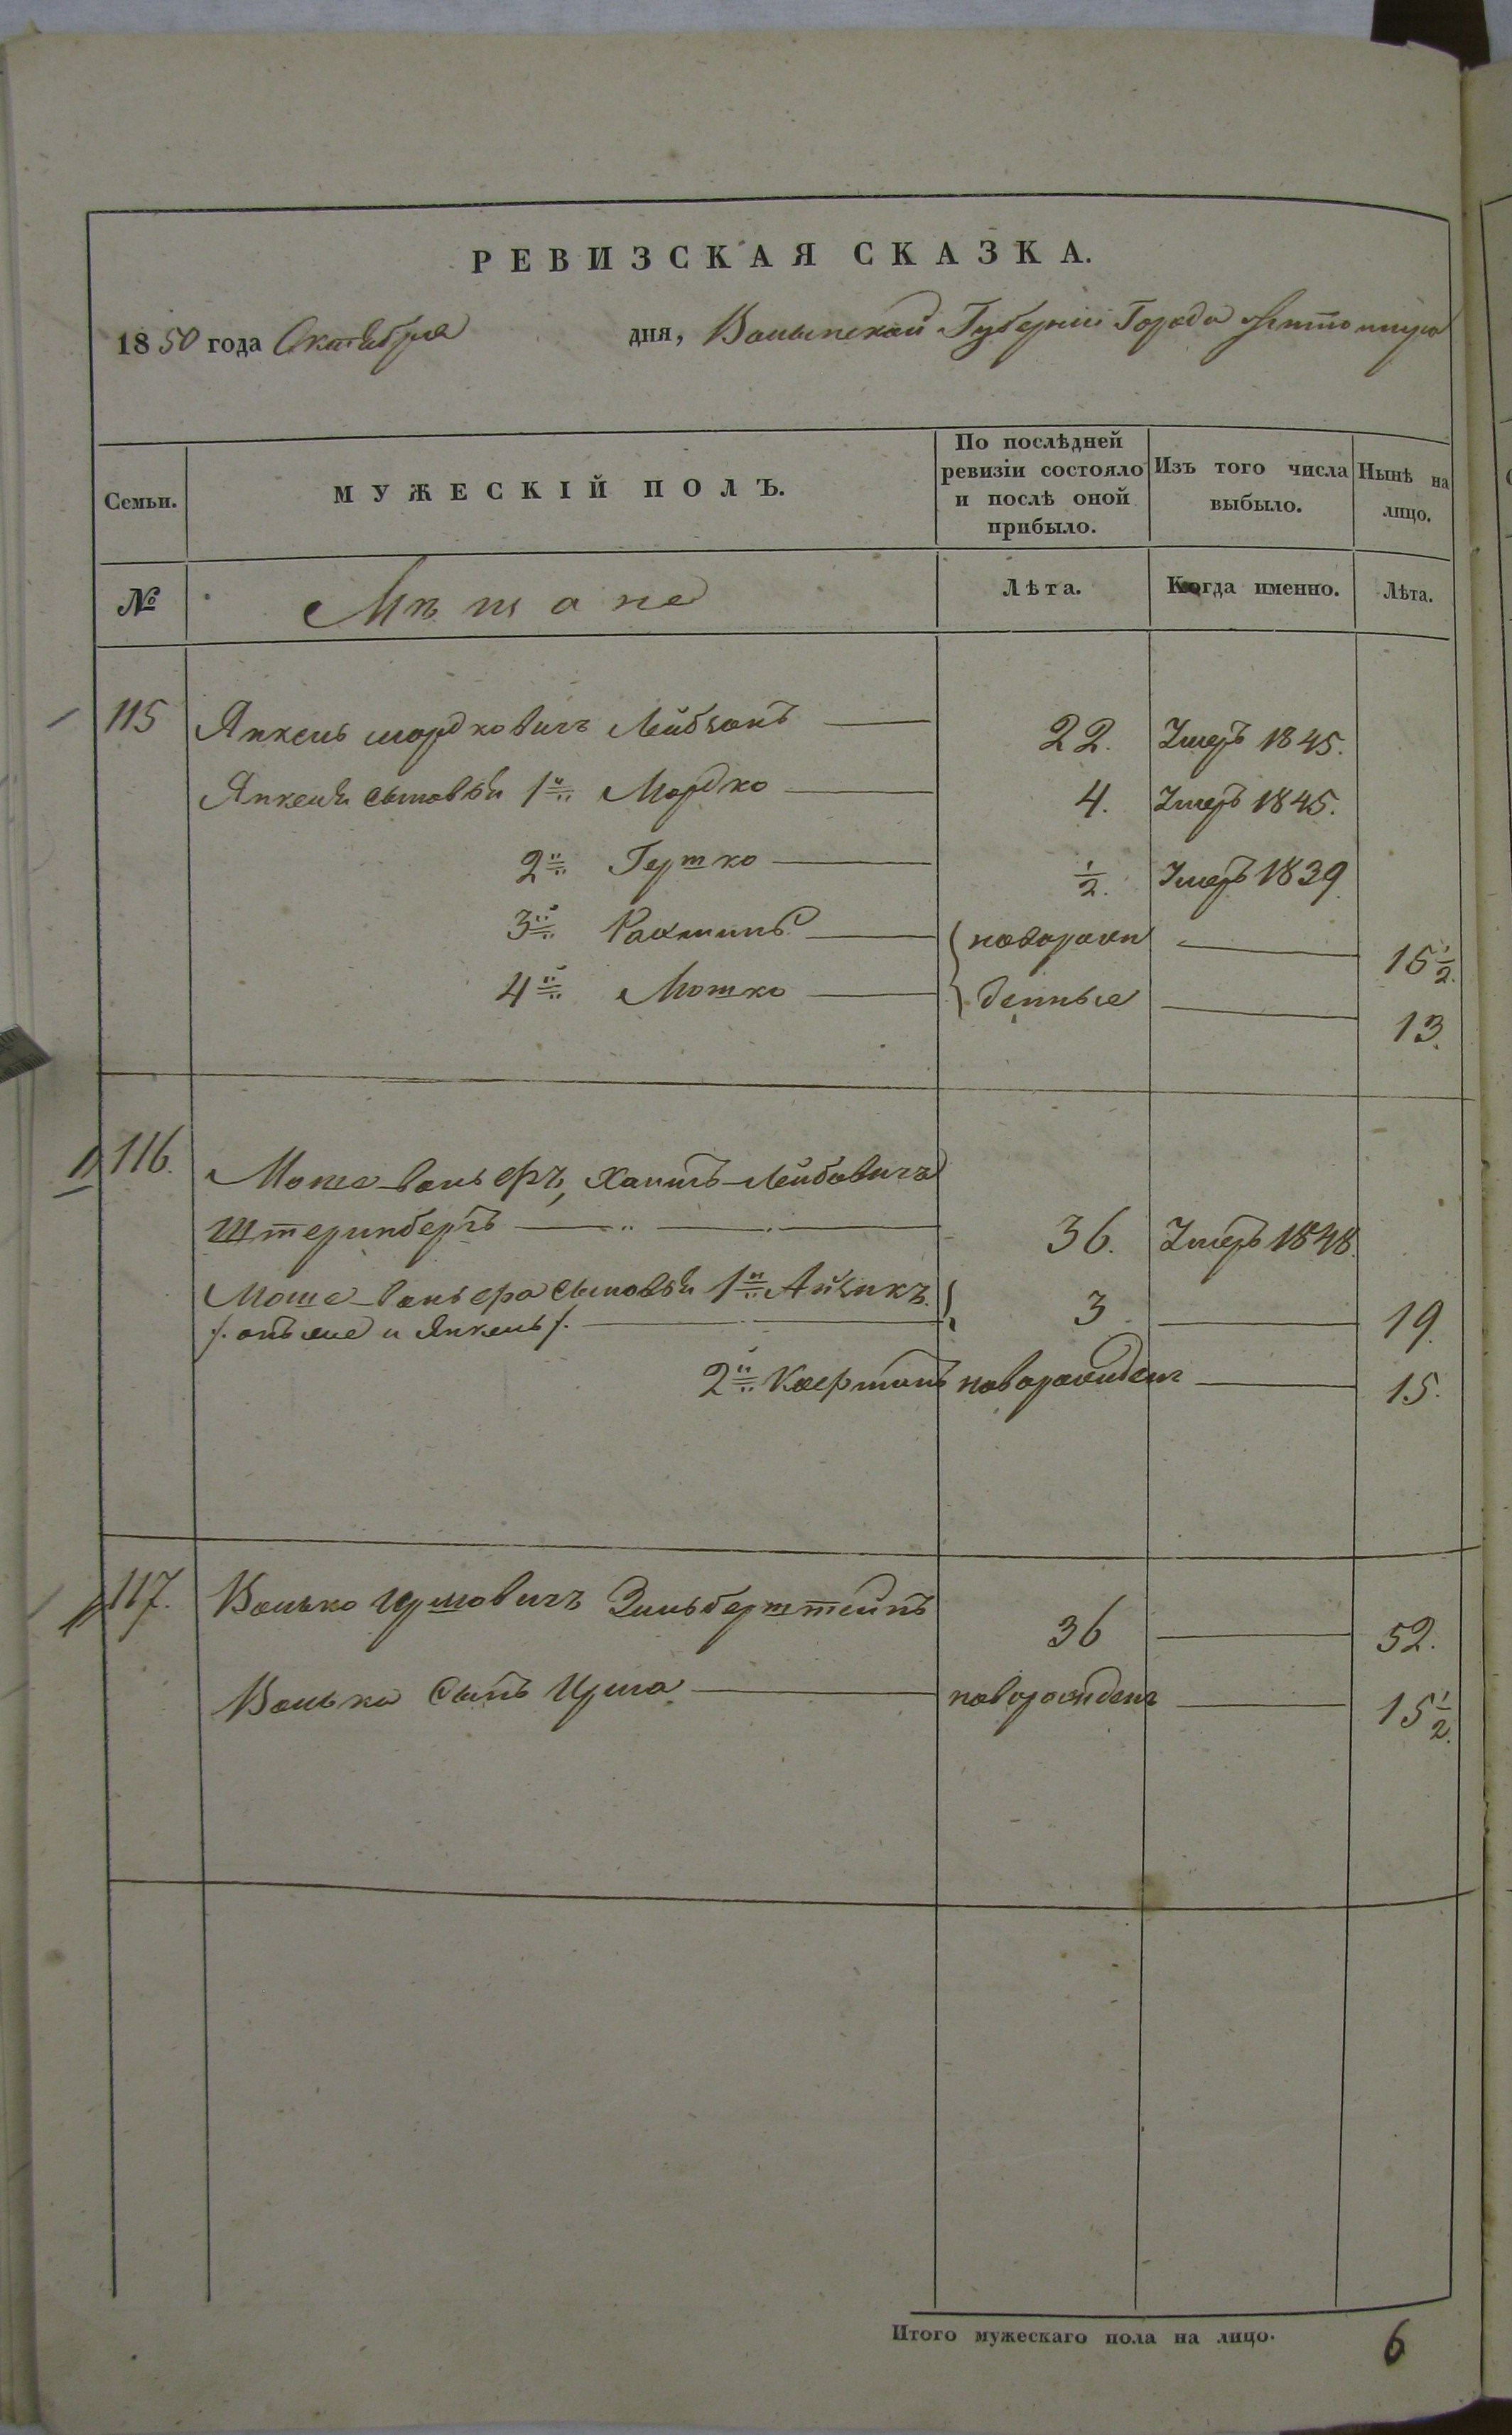 РЕВИЗСКАЯ СКАЗКА.
1850 года Октября дня, Волынской Губернии Города Житомира
Семьи.
МУЖЕСКІЙ ПОЛЪ.
По послѣдней ревизіи состояло и послѣ оной прибыло.
Изъ того числа выбыло.
Нынѣ на лицо.
№
Мѣщане
Лѣта.
Когда именно.
Лѣта.
115 Янкель Мордковичъ Лейбзонъ 22. Умеръ 1845.
Янкеля сыновья 1й Мордко 4. Умеръ 1845.
2й Гершко ½. Умеръ 1839
3й Рахмиль новорож 15½.
4й Мошко денные 13.
116. Моше-Вольфъ, Хаимъ-Лейбовичъ
Штеринбергъ 36. Умеръ 1848.
Моше-Вольфа сыновья 1й Айзикъ 3 19.
/. онъ же и Янкель /.
2й новорожденъ 15.
117. Волько Иршовичъ 36 52.
Волька сынъ Ирша новорожденъ 15½.
Итого мужескаго пола на лицо. 6